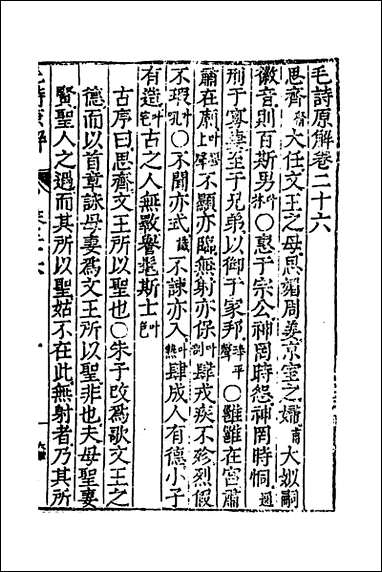 毛詩原解卷二十六
思齊齋大任文王之母思媚周姜京室之婦大姒嗣
徽音則百斯男○惠于宗公神罔時怨神罔時恫通
刑于寡妻至于兄弟以御于家邦○雝雝在宮肅
肅在廟不顯亦臨無射亦保肆戎疾不殄烈假
不瑕○不聞亦式不諫亦入肆成人有德小子
有造古之人無斁譽髦斯士
古序曰思齊文王所以聖也○朱子改爲歌文王之
德而以首章詠母妻爲文王所以聖非也夫母聖妻
賢聖人之遇而其所以聖姑不在此無射者乃其所